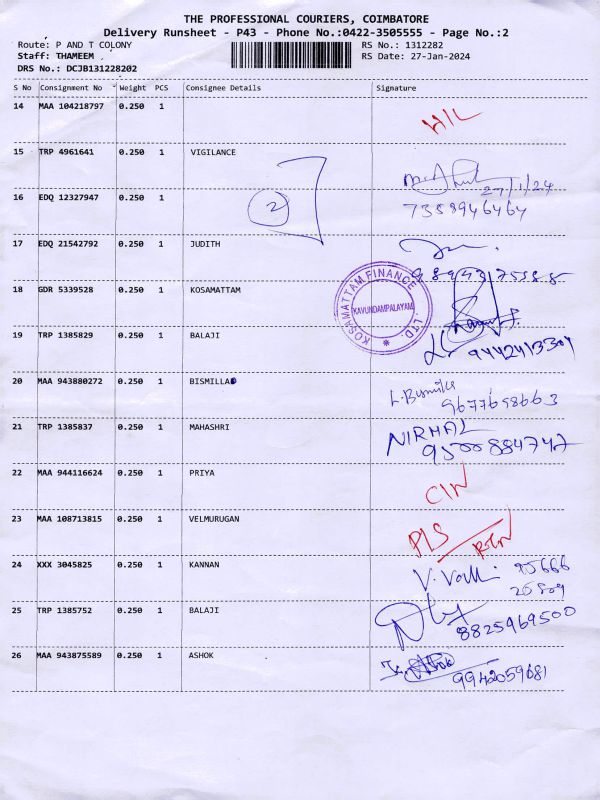 THE PROFESSIONAL COURIERS, COIMBATORE
Delivery Runsheet - P43 - Phone No.:0422-3505555 - Page No.:2
Route: P AND T COLONY RS No.: 1312282
Staff: THAMEEM RS Date: 27-Jan-2024
DRS No.: DCJB131228202
S No Consignment No Weight PCS Consignee Details Signature
14 MAA 104218797 0.250 1
15 TRP 4961641 0.250 1 VIGILANCE
27/1/24
16 EDQ 12327947 0.250 1 2 7358946464
17 EDQ 21542792 0.250 1 JUDITH
18 GDR 5339528 0.250 1 KOSAMATTAM
KOSAMATTAM FINANCE LTD.
KAVUNDAMPALAYAM
19 TRP 1385829 0.250 1 BALAJI
9442413301
20 MAA 943880272 0.250 1 BISMILLA
9677698663
21 TRP 1385837 0.250 1 MAHASHRI NIRMAL
22 MAA 944116624 0.250 1 PRIYA
23 MAA 108713815 0.250 1 VELMURUGAN
24 XXX 3045825 0.250 1 KANNAN V. Valli 95666
25 TRP 1385752 0.250 1 BALAJI
8825969500
26 MAA 943875589 0.250 1 ASHOK
9942059681